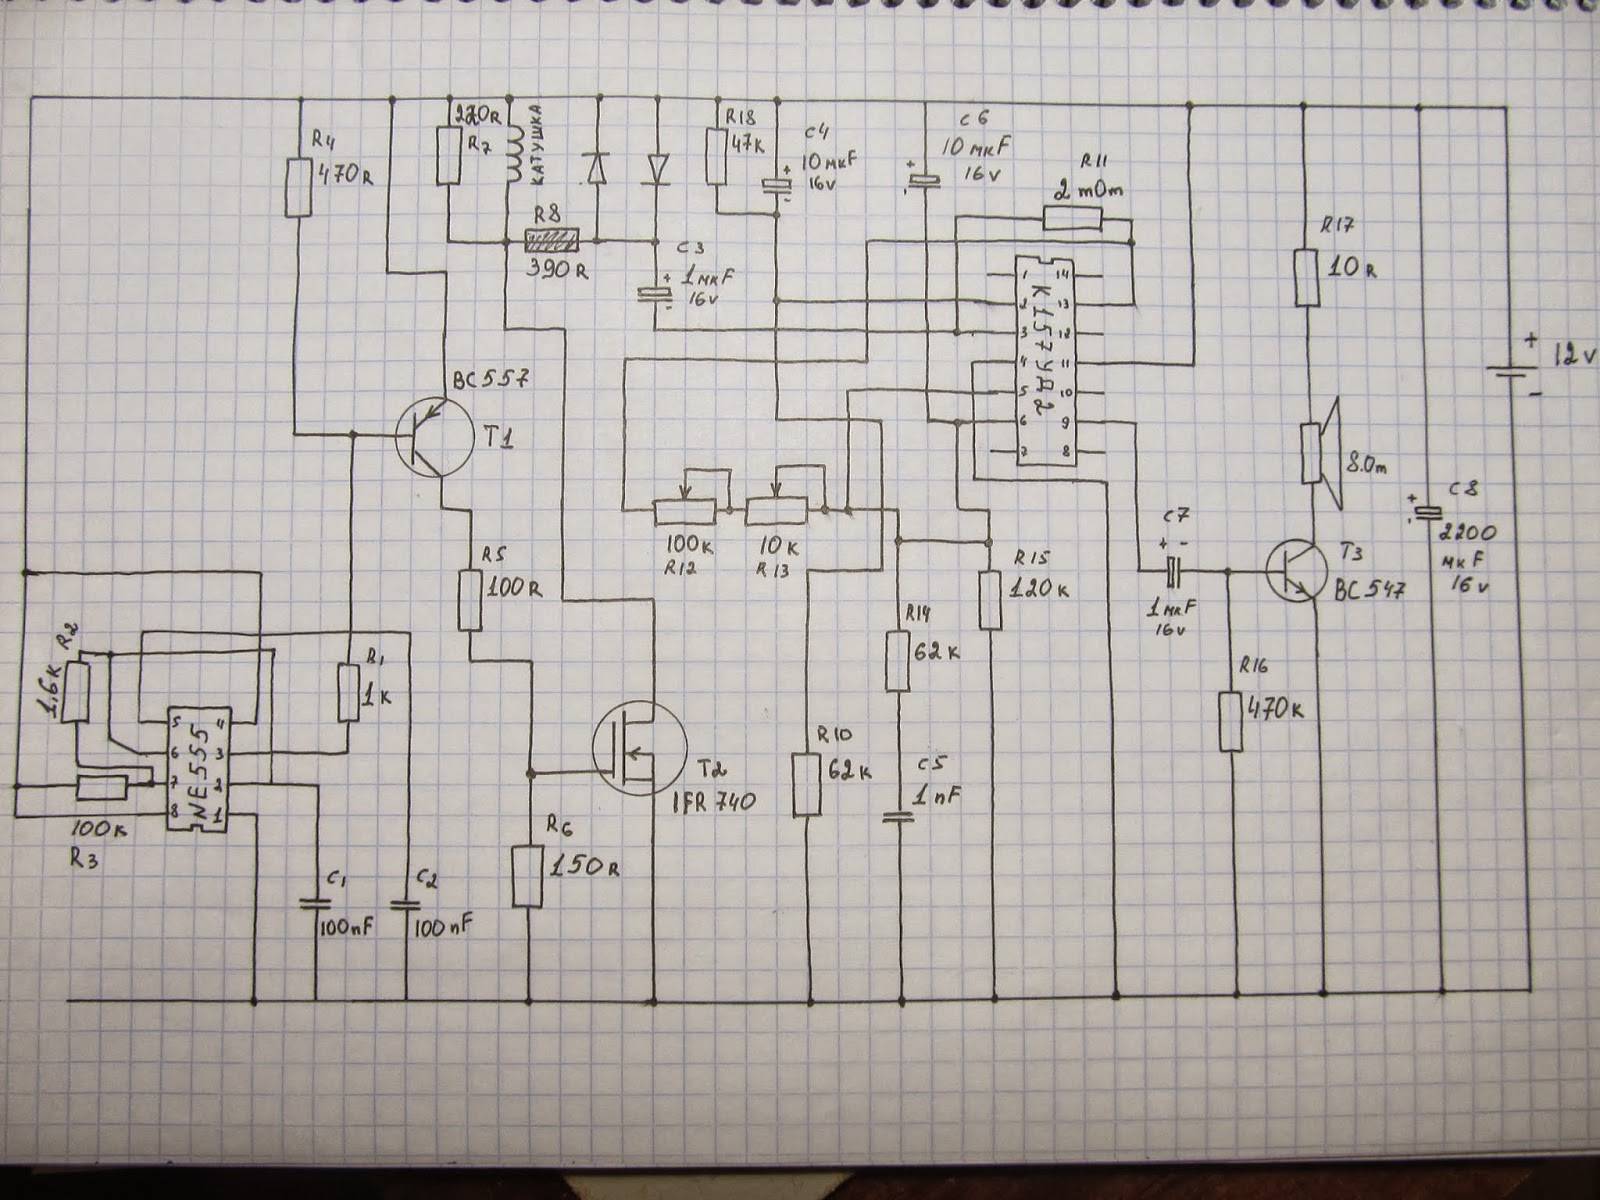 R4
470R
220R
R7
КАТУШКА
R8
390R
R18
47K
C4
10мкF
16v
C6
10мкF
16v
R11
2 mOm
C3
+ 1мкF
- 16v
R17
10R
+
12v
-
BC557
T1
1 14
2 13
3 12
4 11
5 10
6 9
7 8
К157УД2
8.0m
100K
R12
10K
R13
R5
100R
R15
120K
C7
+ -
1мкF
16v
T3
BC547
C8
2200
мкF
16v
R2
1,6K
R1
1K
R14
62K
R16
470K
5 4
6 3
7 2
8 1
NE555
100K
R3
T2
IFR740
R10
62K
C5
1nF
R6
150R
C1
100nF
C2
100nF